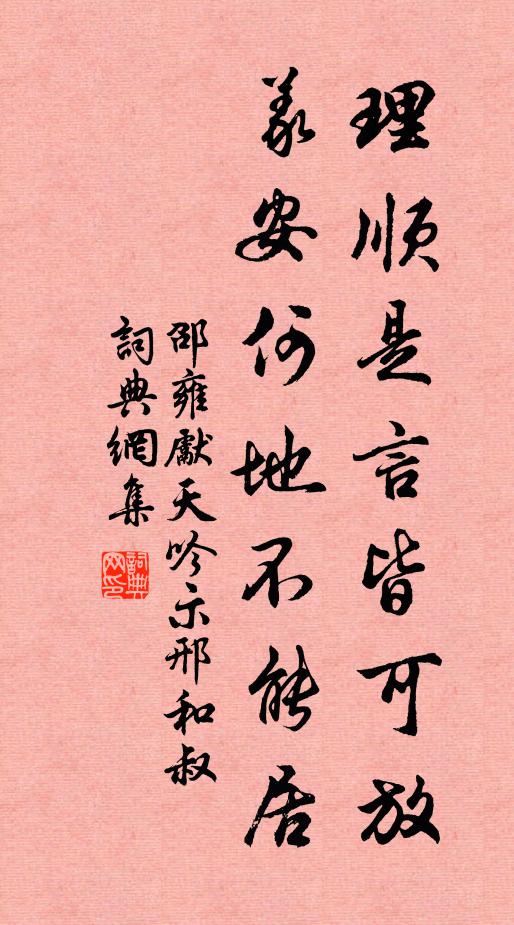 理順是言皆可放
義安何地不能居
邵雍瞮天吟示邢和叔
詞典網集
詞典網印